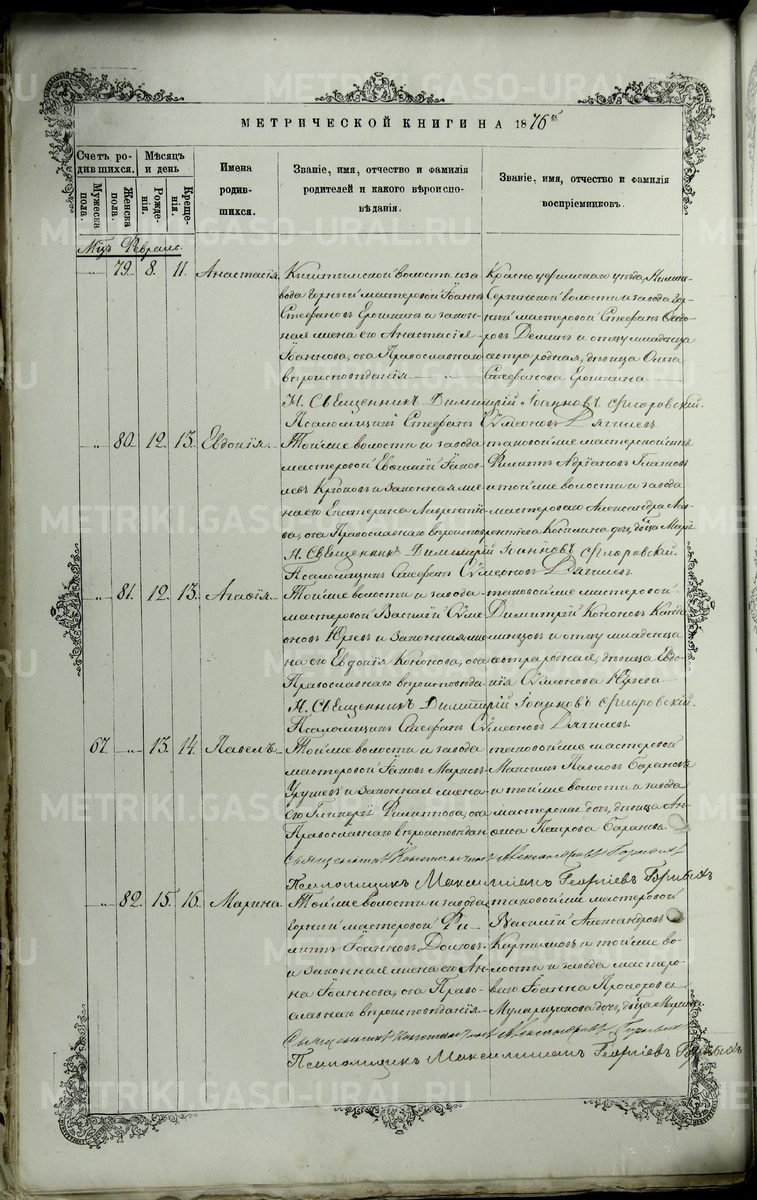 МЕТРИЧЕСКОЙ КНИГИ НА 1876
Счетъ родившихся.
Мужеска пола.
Женска пола.
Мѣсяцъ и день
Рожденія.
Крещенія.
Имена
родив-
шихся.
Званіе, имя, отчество и фамилія
родителей и какого вѣроиспо-
вѣданія.
Званіе, имя, отчество и фамилія
воспріемниковъ.
Мцъ Февраль.
79. 8. 11. Анастасія
Кыштымской волости и за-
вода горный мастеровой Іоаннъ
Стефановъ Ерошкинъ и закон-
ная жена его Анастасія
Іоаннова, оба Православнаго
вѣроисповѣданія
Красноуфимскаго уѣзда, Нижне-
Сергинской волости и завода гор-
ный мастеровой Стефанъ
Деминъ и отцу младенца
сестра родная, дѣвица Ольга
Стефанова Ерошкина.
Н. Священникъ Димитрій Іоанновъ Флоровскій.
Псаломщикъ Стефанъ Сѵмеоновъ Дягилевъ
80. 12. 13. Евдокія.
Той же волости и завода
мастеровой Евѳимій Іаков-
левъ и законная же-
на его Екатерина Лаврентіе-
ва, оба Православнаго вѣроиспов.
таковой же мастерской сынъ
Филиппъ Адріановъ
и той же волости и завода
мастероваго Александра Лав-
рентьева дочь, дѣвица Марія
Н. Священникъ Димитрій Іоанновъ Флоровскій.
Псаломщикъ Стефанъ Сѵмеоновъ Дягилевъ
81. 12. 13. Агафія
Той же волости и завода
мастеровой Василій Сѵме-
оновъ Юрьевъ и законная же-
на его Евдокія Кононова, оба
Православнаго вѣроисповѣда-
таковой же мастеровой
Димитрій Кононовъ
и отцу младенца
сестра родная, дѣвица Евдо-
кія Сѵмеонова Юрьева
Н. Священникъ Димитрій Іоанновъ Флоровскій.
Псаломщикъ Стефанъ Сѵмеоновъ Дягилевъ
67. 13. 14. Павелъ
Той же волости и завода
мастеровой Іаковъ Марковъ
и законная жена
его Гликерія Филиппова, оба
Православнаго вѣроисповѣдан
таковой же мастеровой
Максимъ Павловъ Барановъ
и той же волости и завода
мастерская дочь, дѣвица Ан-
фиса Петрова Баранова.
Священникъ Константинъ Александровъ
Псаломщикъ Максимиліанъ Георгіевъ
82. 15. 16. Марина
Той же волости и завода
горный мастеровой Фи-
липпъ Іоанновъ Долговъ
и законная жена его Ан-
на Іоаннова, оба Право-
славнаго вѣроисповѣданія
таковой же мастеровой
Василій Александровъ
и той же во-
лости и завода мастеро-
ваго Іоанна Прохорова
дочь, дѣвица
Священникъ Константинъ Александровъ
Псаломщикъ Максимиліанъ Георгіевъ
METRIKI.GASO-URAL.RU